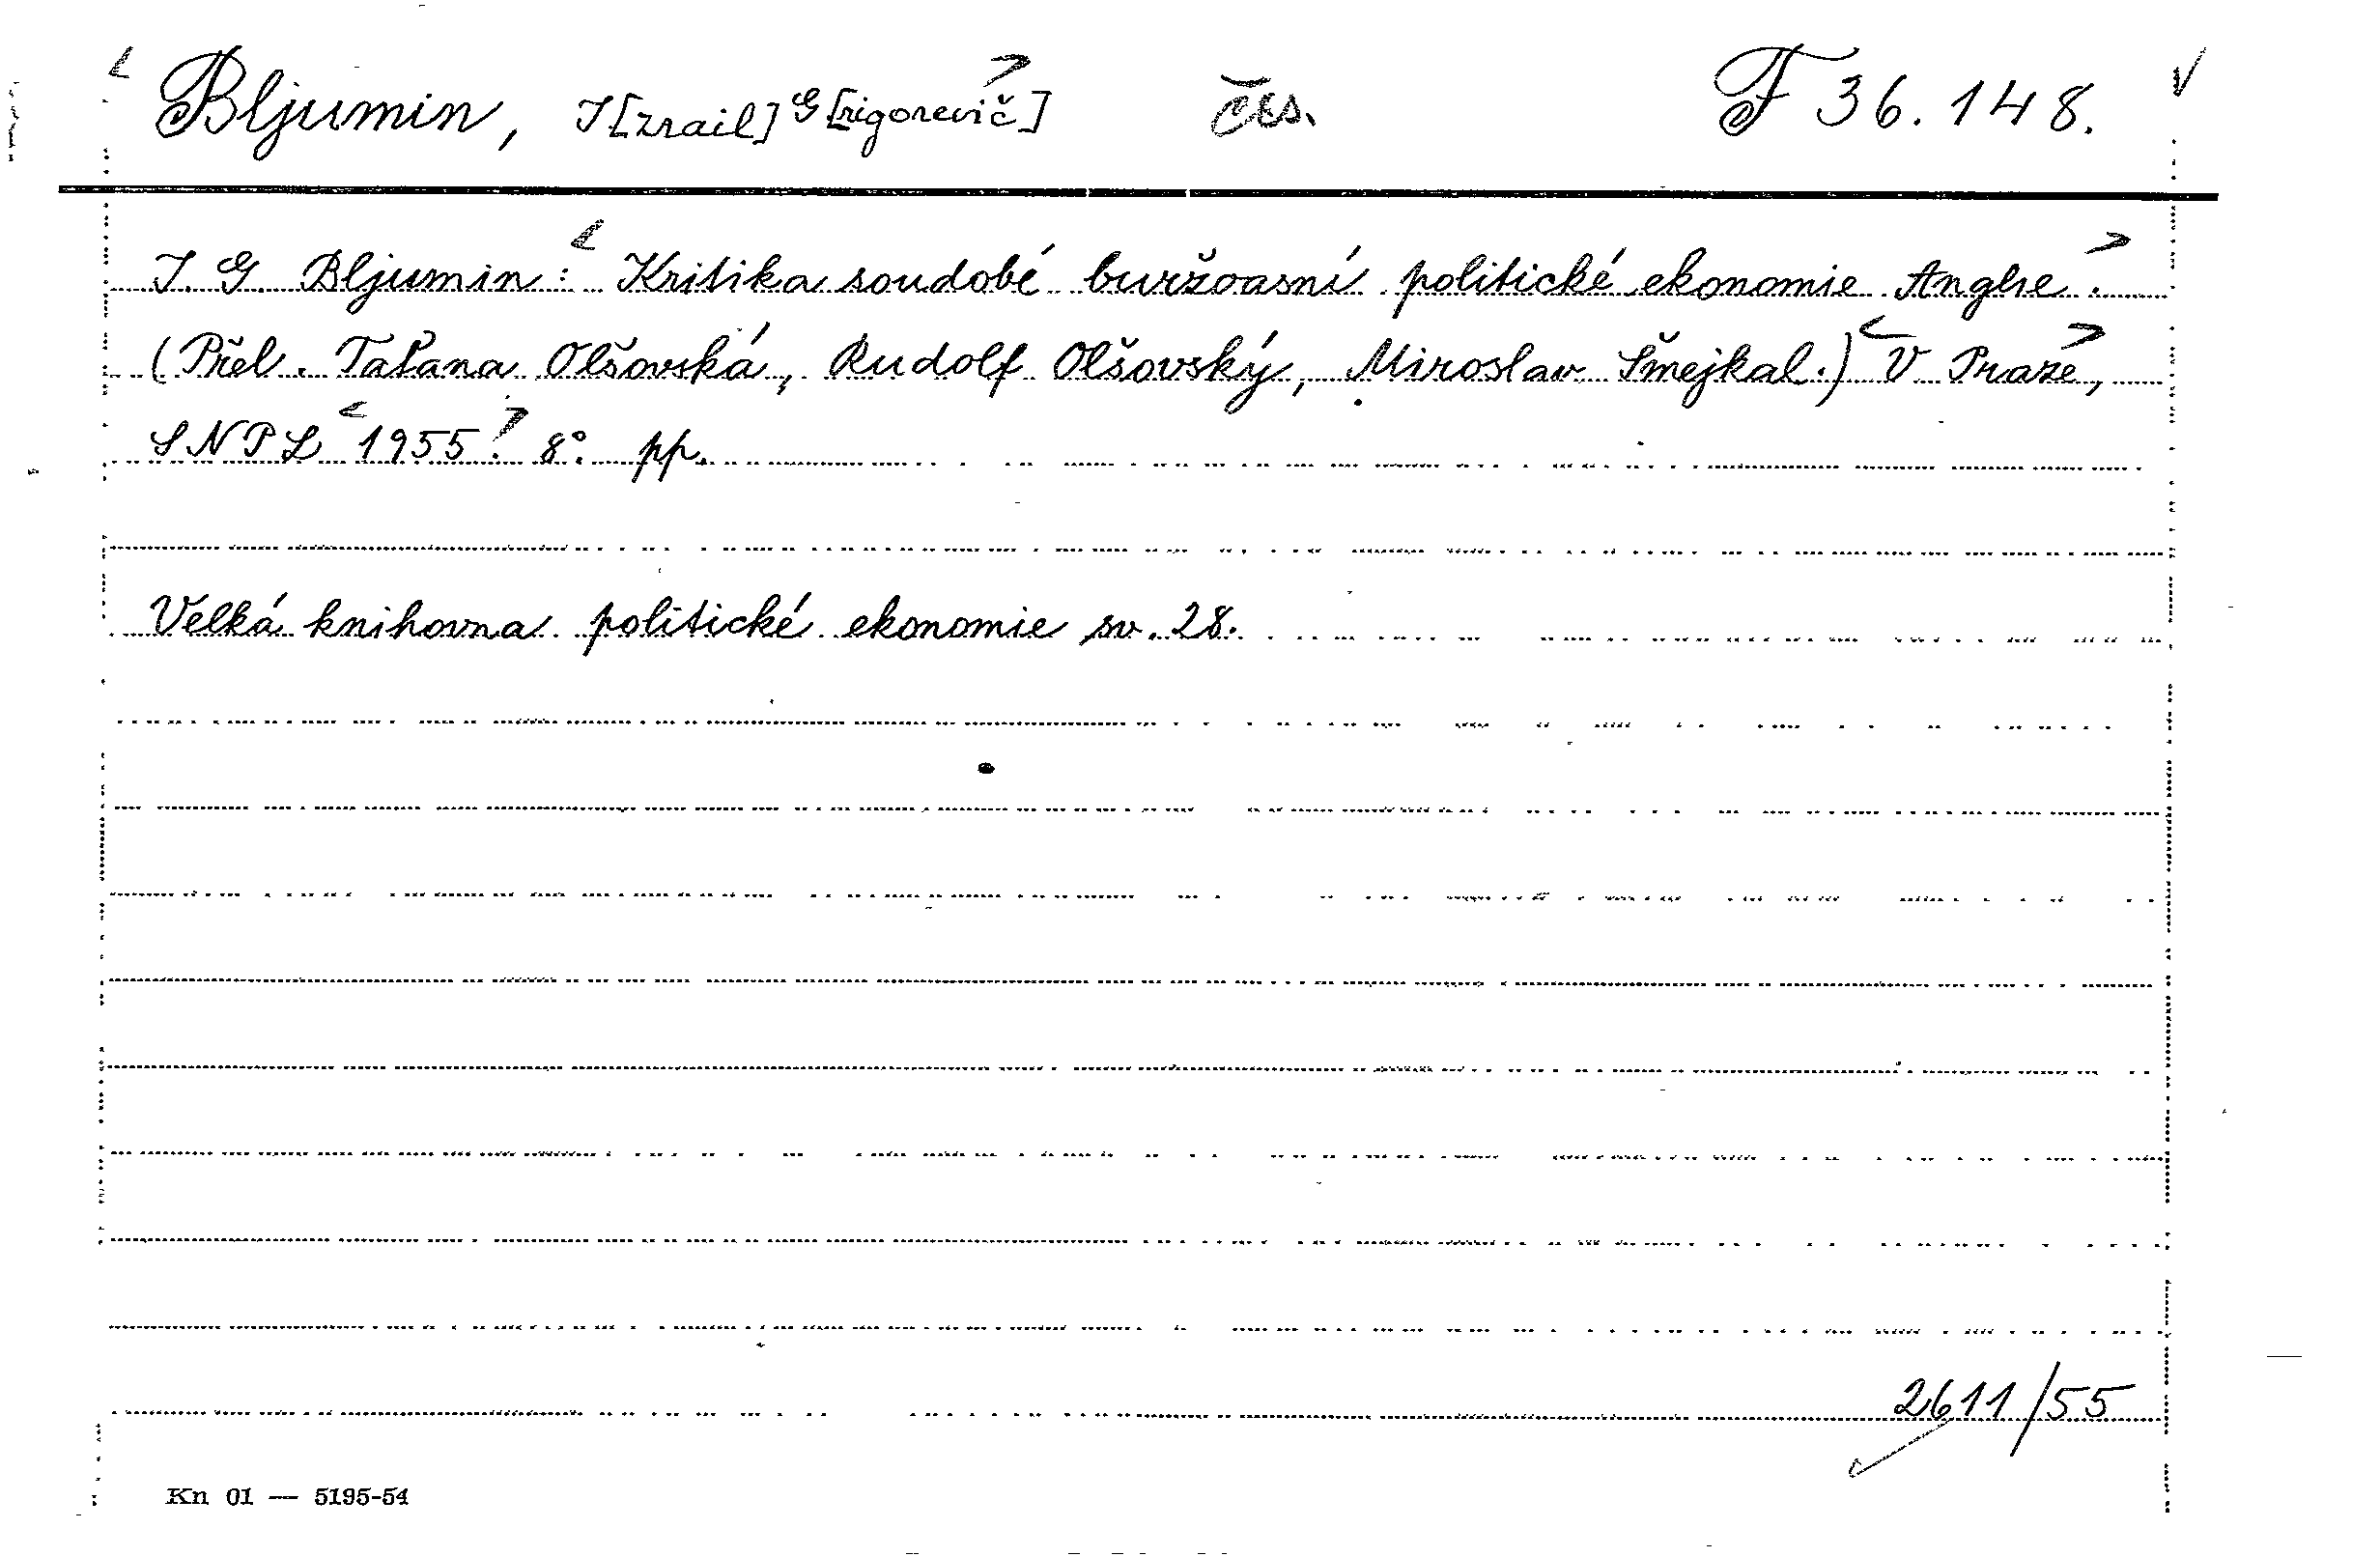 Bljumin, I[zrail] G[rigorevič] čes. F 36.148.
I. G. Bljumin: Kritika soudobé buržoasní politické ekonomie Anglie.
(Přel. Taťana Olšovská, Rudolf Olšovský, Miroslav Šmejkal.) V Praze,
SNPL 1955. 8°. pp.
Velká knihovna politické ekonomie sv. 28.
2611/55
Kn 01 — 5195-54